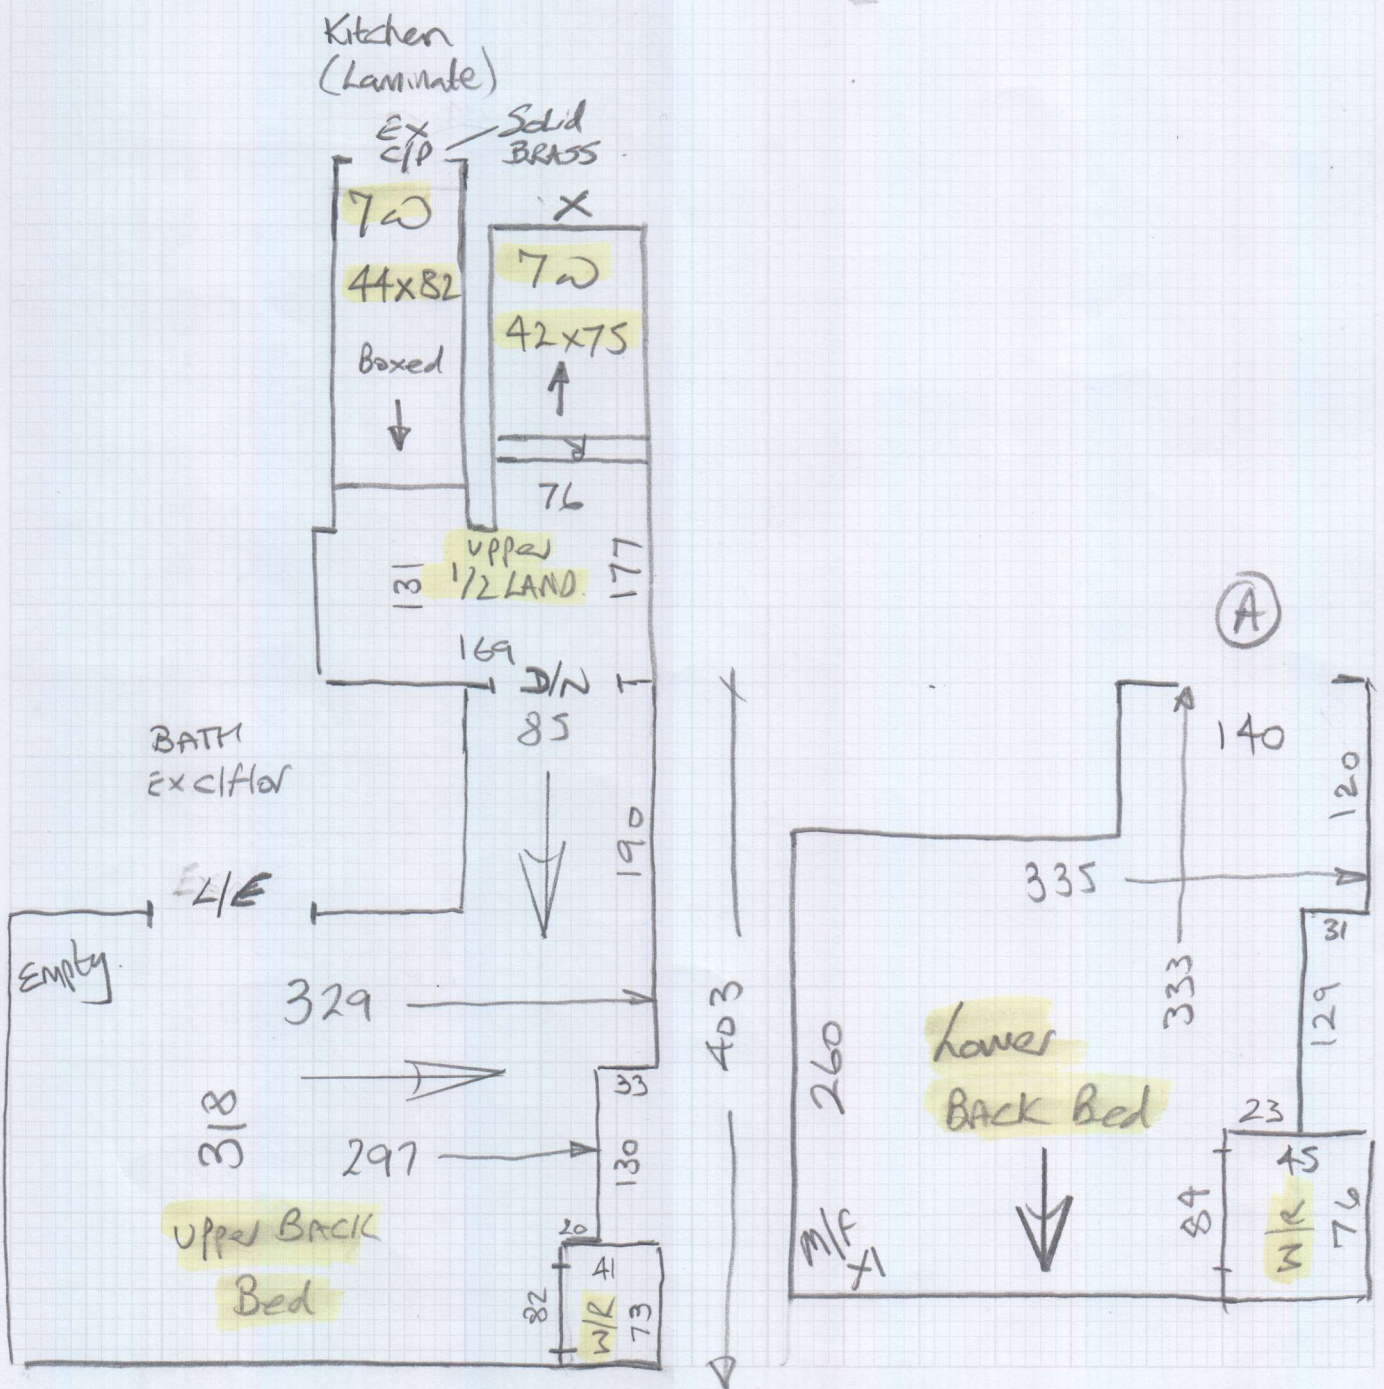 Kitchen
(Laminate)
EX
C/P
Solid
BRASS
7W
44x82
Boxed
X
7W
42x75
76
upper
1/2 LAND.
131
177
169
D/N
85
BATH
Ex c/flor
190
L/E
Empty.
329
403
33
318
297
130
upper BACK
Bed
20
41
82
W/R
73
A
140
120
335
31
333
129
260
Lower
BACK Bed
23
45
84
W/R
76
M/F
X1